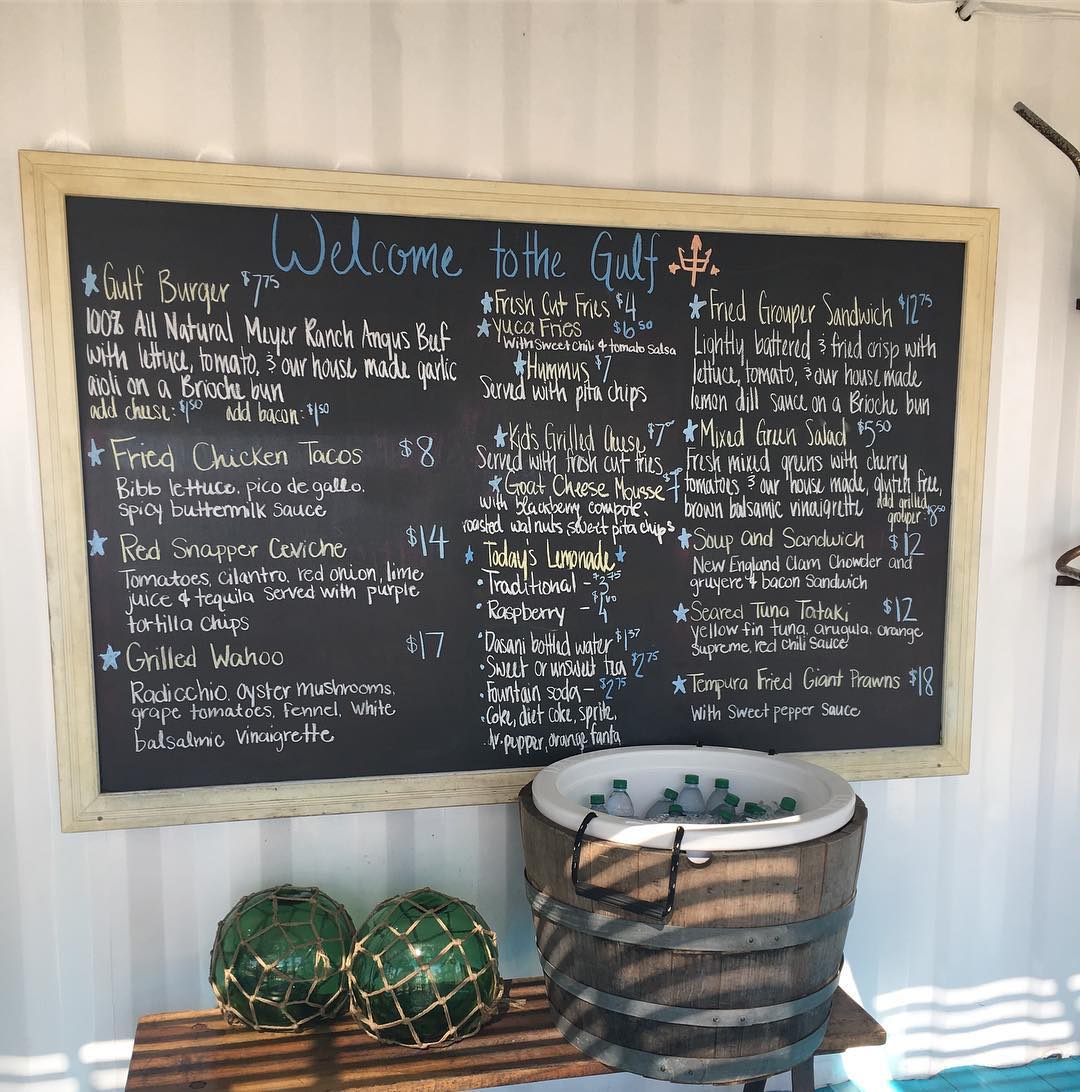 Welcome to the Gulf
Gulf Burger $7.75
100% All Natural Meyer Ranch Angus Beef
with lettuce, tomato, & our house made garlic
aioli on a Brioche bun
add cheese: $1.50 add bacon: $1.50
Fried Chicken Tacos $8
Bibb lettuce, pico de gallo,
spicy buttermilk sauce
Red Snapper Ceviche $14
Tomatoes, cilantro, red onion, lime
juice & tequila served with purple
tortilla chips
Grilled Wahoo $17
Radicchio, oyster mushrooms,
grape tomatoes, fennel, white
balsalmic vinaigrette
Fresh Cut Fries $4
Yuca Fries $6.50
with sweet chili & tomato salsa
Hummus $7
Served with pita chips
Kid's Grilled Cheese $7
Served with fresh cut fries
Goat Cheese Mousse $7
with blackberry compote,
roasted walnuts, sweet pita chips
Today's Lemonade
Traditional -
Raspberry -
Dasani bottled water
Sweet or unsweet tea $2.75
Fountain soda - $2.75
Coke, diet coke, sprite,
dr. pepper, orange fanta
Fried Grouper Sandwich $12.75
Lightly battered & fried crisp with
lettuce, tomato, & our house made
lemon dill sauce on a Brioche bun
Mixed Green Salad $5.50
Fresh mixed greens with cherry
tomatoes & our house made, gluten free,
brown balsamic vinaigrette add grilled
grouper:
Soup and Sandwich $12
New England Clam Chowder and
gruyere & bacon sandwich
Seared Tuna Tataki $12
yellow fin tuna, arugula, orange
supreme, red chili sauce
Tempura Fried Giant Prawns $18
with sweet pepper sauce